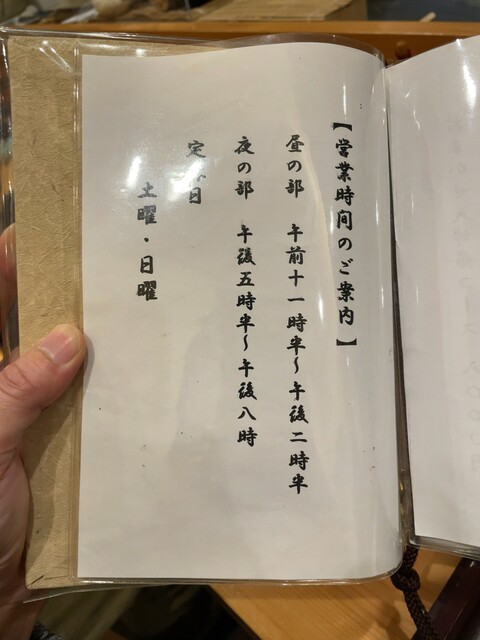 【営業時間のご案内】
昼の部 午前十一時半～午後二時半
夜の部 午後五時半～午後八時
定休日
土曜・日曜